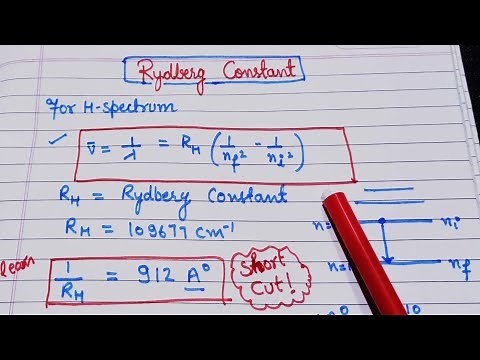 Rydberg Constant
For H-spectrum
✓ ν̄ = 1/λ = R_H (1/n_f² - 1/n_i²)
R_H = Rydberg Constant
R_H = 109677 cm⁻¹
n= n_i
Learn 1/R_H = 912 A° Short Cut!
n= n_f